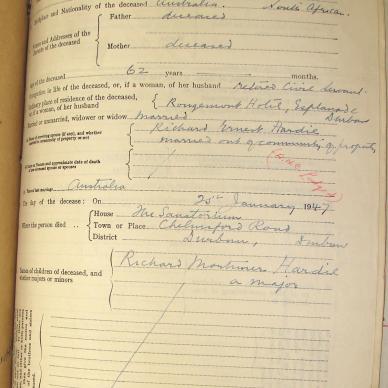 Birthplace and Nationality of the deceased Australia. South African.
Names and Addresses of the
Parents of the deceased
Father deceased
Mother deceased
Age of the deceased 62 years months.
Occupation in life of the deceased, or, if a woman, of her husband retired Civil Servant.
Ordinary place of residence of the deceased,
or, if a woman, of her husband
Rougemont Hotel, Esplanade
Durban
Married or unmarried, widower or widow married
Name of surviving spouse (if any), and whether
married in community of property or not
Richard Ernest Hardie
married out of community of property
Name or Names and approximate date of death
of pre-deceased spouse or spouses
Place of last marriage Australia
The day of the decease: On 25th January 1947
Where the person died ..
House The Sanatorium
Town or Place Chelmsford Road
District Durban, Durban
Names of children of deceased, and
whether majors or minors
Richard Mortimer Hardie
a major